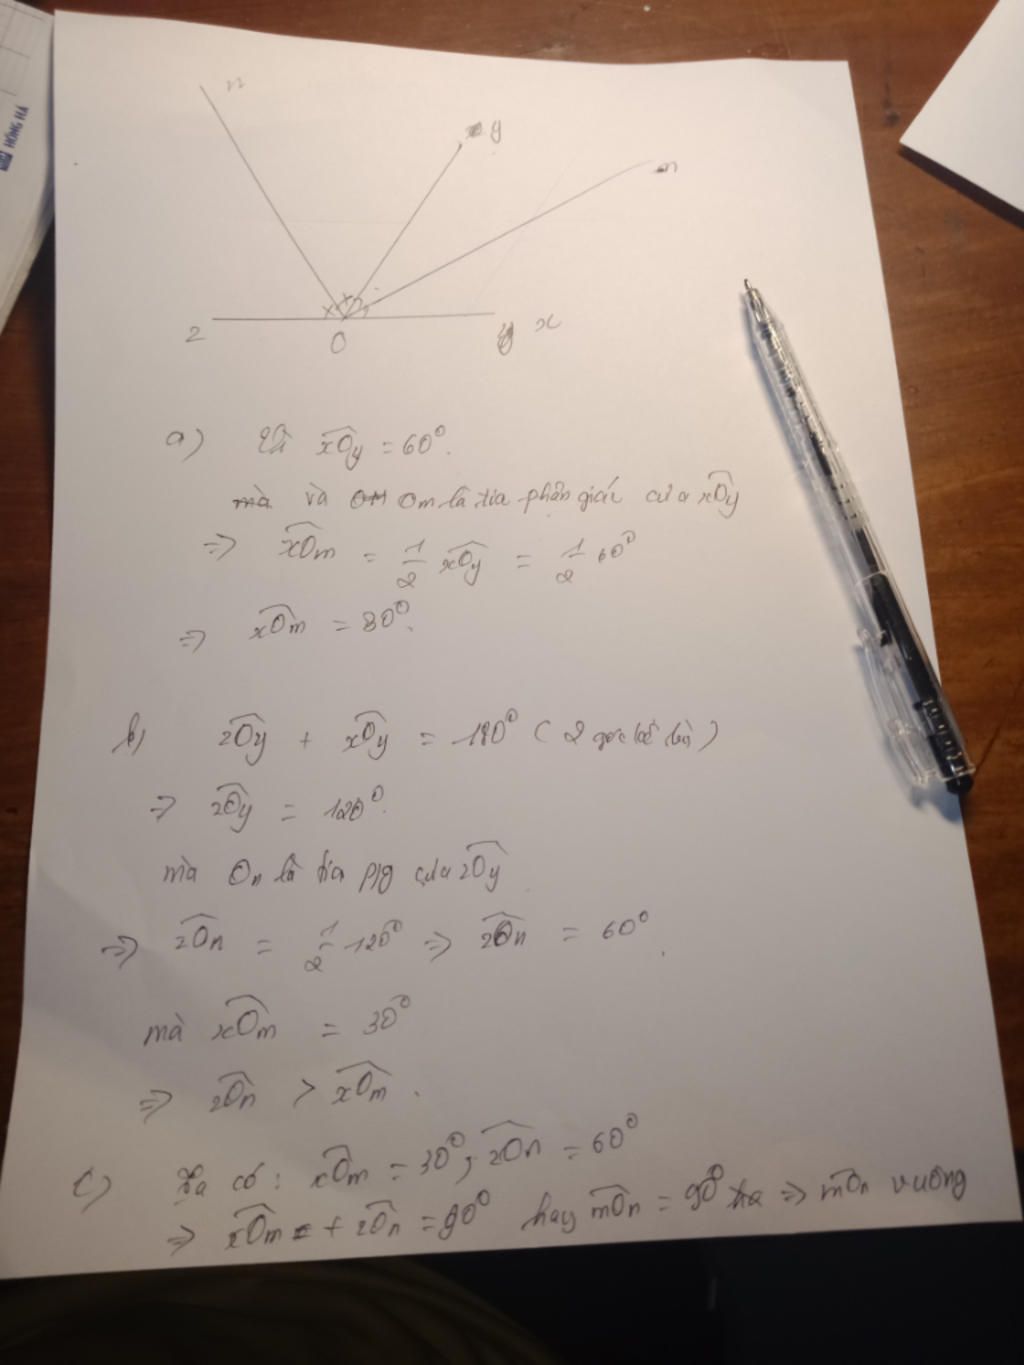 HỒNG HÀ
n
y
m
z
O
x
a) Vì xOy = 60°.
mà và OM Om là tia phân giác của xOy
=> xOm = 1/2 xOy = 1/2 60°
=> xOm = 30°.
b) zOy + xOy = 180° ( 2 góc kề bù )
=> zOy = 120°.
mà On là tia p/g của zOy
=> zOn = 1/2 120° => zOn = 60°.
mà xOm = 30°
=> zOn > xOm.
c) Ta có : xOm = 30° ; zOn = 60°
=> xOm + zOn = 90° hay mOn = 90° => mOn vuông